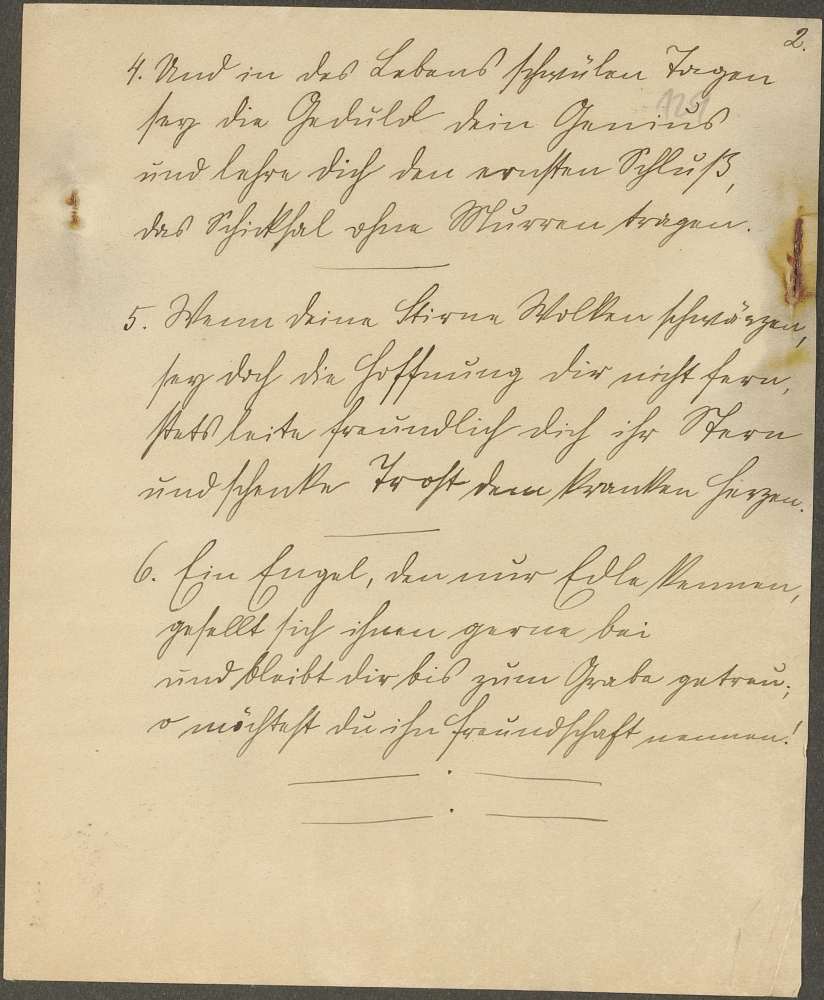 2.
4. Und in des Lebens schwülen Tagen
121
sey die Geduld dein Genius
und lehre dich den ernsten Schluß,
das Schicksal ohne Murren tragen.
5. Wenn deine Stirne Wolken schwärzen,
sey doch die Hoffnung dir nicht fern,
stets leite freundlich dich ihr Stern
und schenke Trost dem kranken Herzen.
6. Ein Engel, den nur Edle kennen,
gesellt sich ihnen gerne bei
und bleibt dir bis zum Grabe getreu;
o möchtest du ihn Freundschaft nennen!